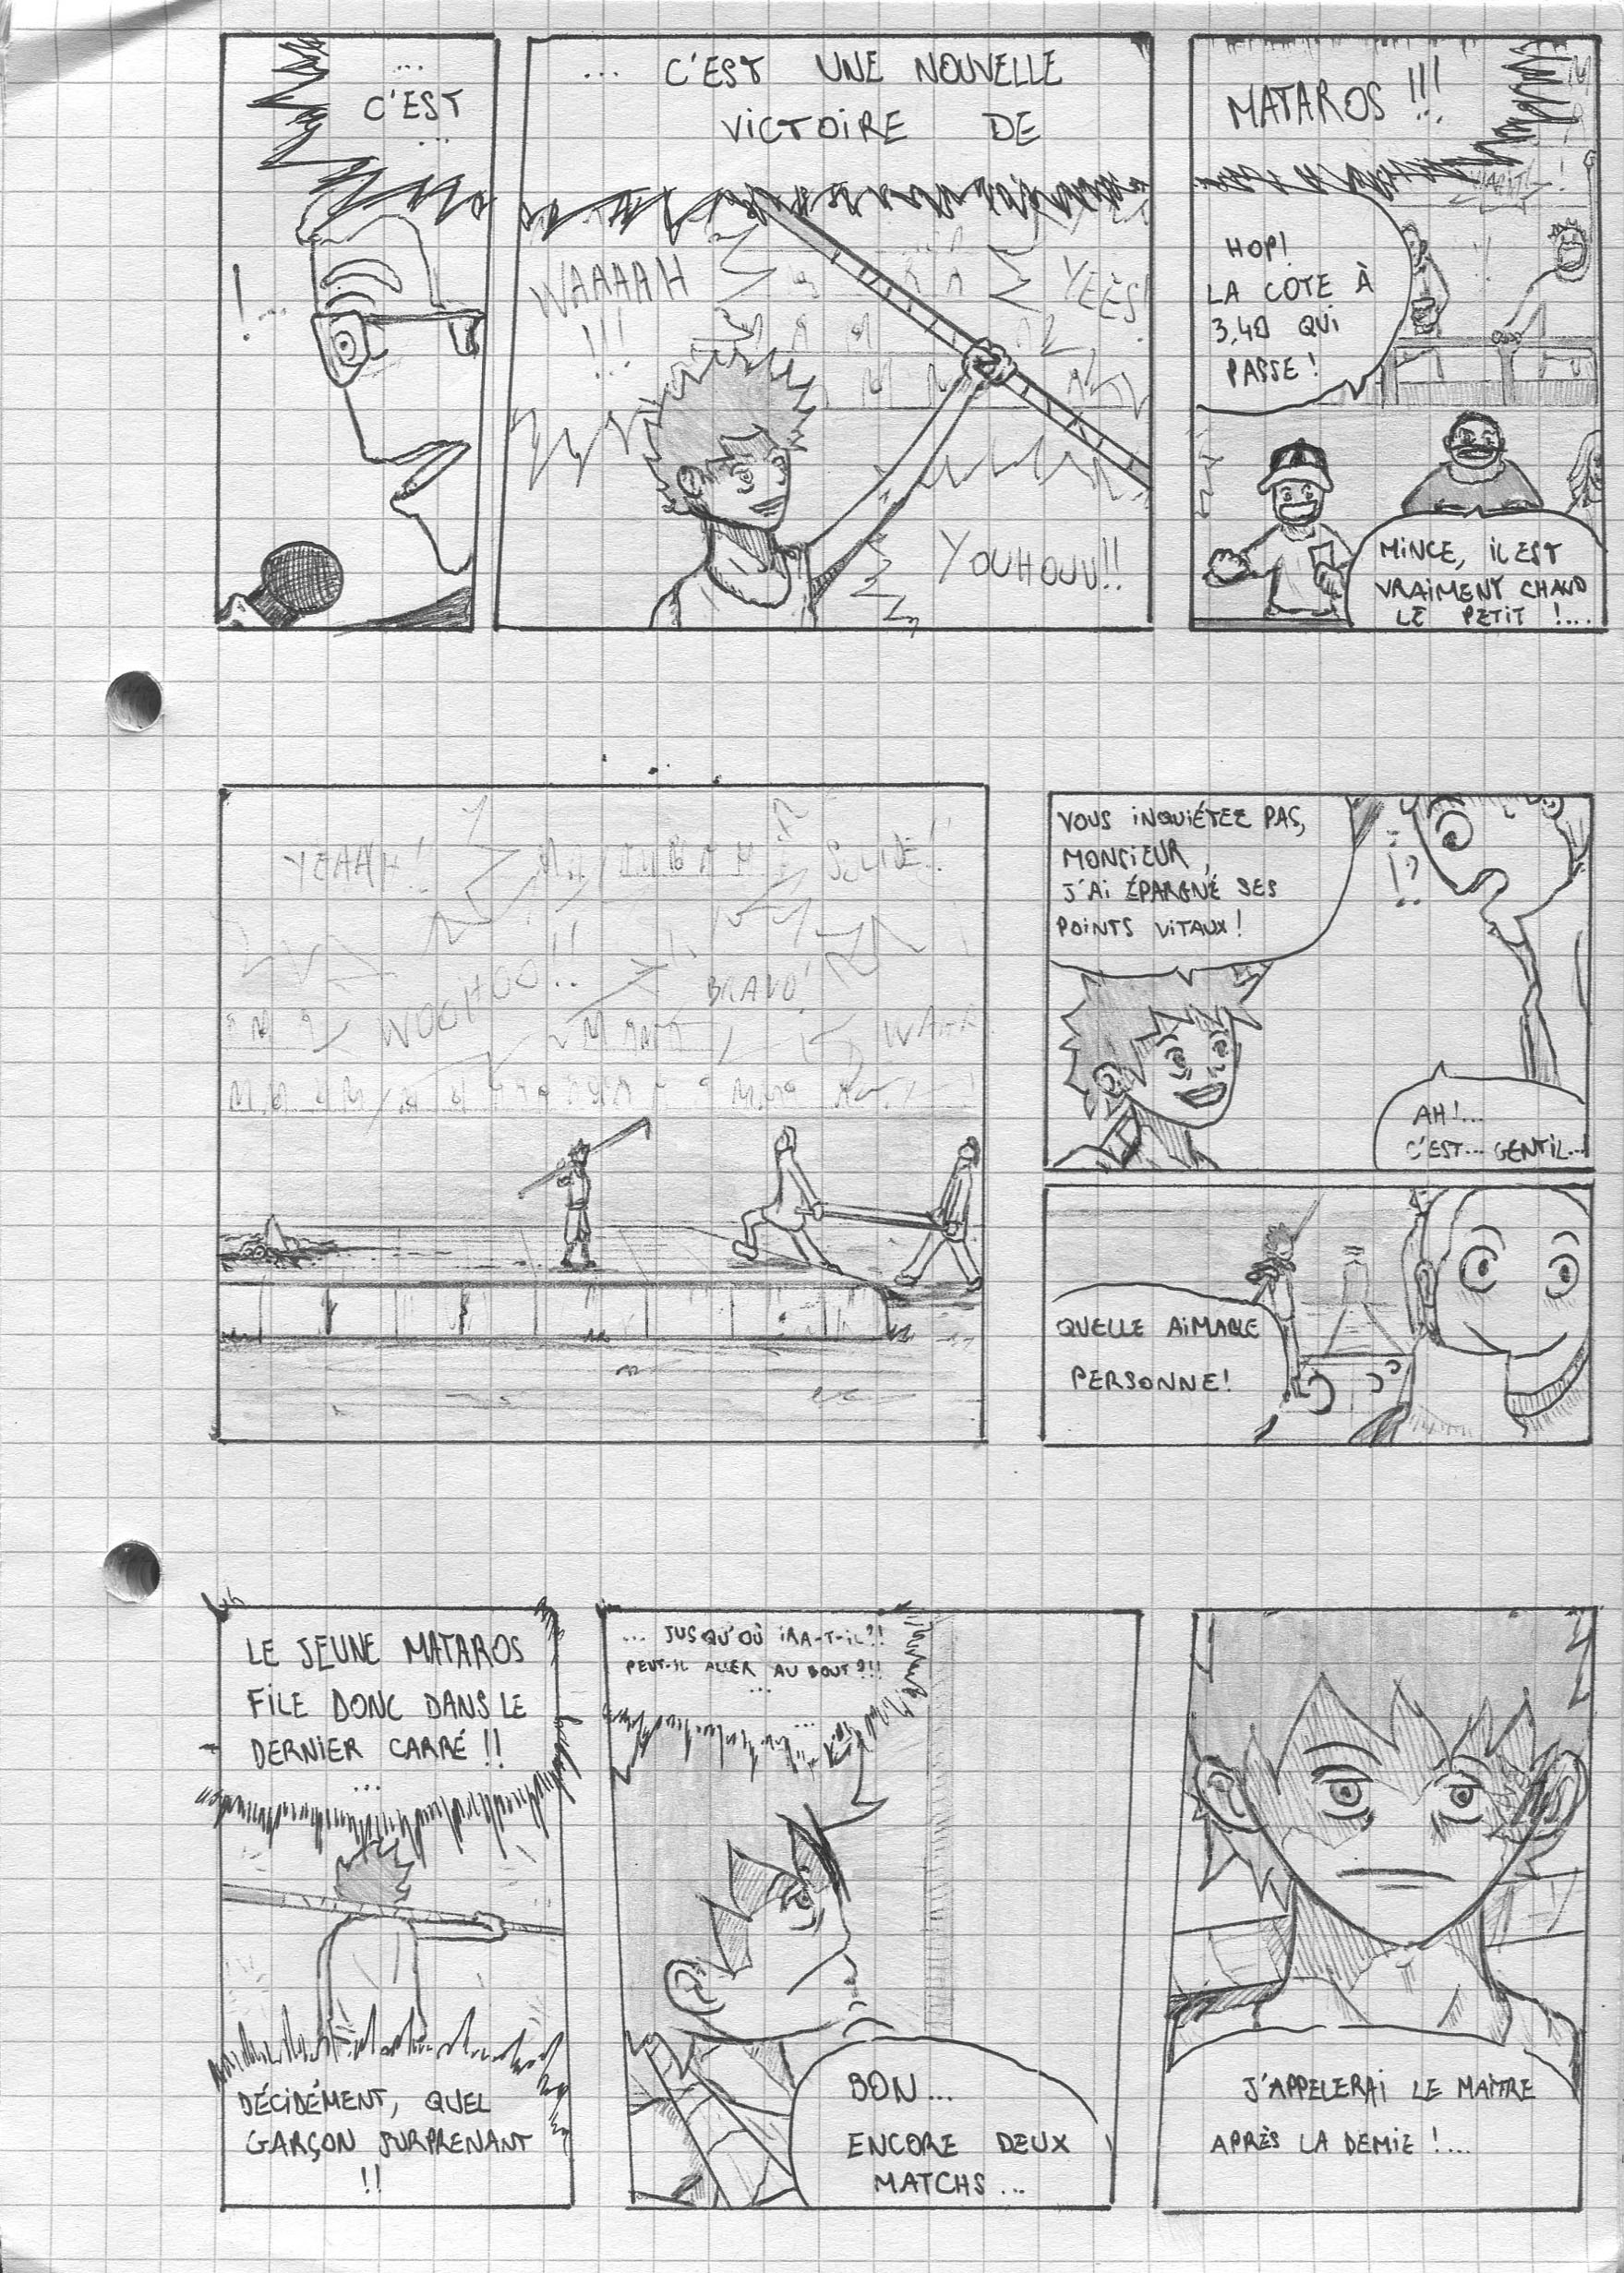 ...
C'EST
...
!...
... C'EST UNE NOUVELLE
VICTOIRE DE
WAAAAH
!!!
YEES!
YOUHOUU!!
MATAROS !!!
HOP!
LA COTE À
3,40 QUI
PASSE!
MINCE, IL EST
VRAIMENT CHAUD
LE PETIT !...
YEAAH!!
SOLIDE!
WOOHOO!!
BRAVO!
VOUS INQUIÉTEZ PAS,
MONSIEUR,
J'AI ÉPARGNÉ SES
POINTS VITAUX!
!?
AH!...
C'EST... GENTIL...!
QUELLE AIMABLE
PERSONNE!
LE JEUNE MATAROS
FILE DONC DANS LE
DERNIER CARRÉ !!
...
DÉCIDÉMENT, QUEL
GARÇON SURPRENANT
!!
... JUSQU'OÙ IRA-T-IL?!
PEUT-IL ALLER AU BOUT?!!
...
BON...
ENCORE DEUX
MATCHS...
J'APPELERAI LE MAITRE
APRÈS LA DEMIE !...